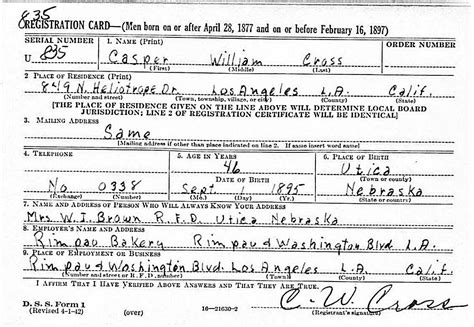 835
REGISTRATION CARD—(Men born on or after April 28, 1877 and on or before February 16, 1897)
SERIAL NUMBER 1. NAME (Print) ORDER NUMBER
U 835 Casper William Cross
(First) (Middle) (Last)
2. PLACE OF RESIDENCE (Print)
849 N. Heliotrope Dr. Los Angeles L.A. Calif.
(Number and street) (Town, township, village, or city) (County) (State)
[THE PLACE OF RESIDENCE GIVEN ON THE LINE ABOVE WILL DETERMINE LOCAL BOARD
JURISDICTION; LINE 2 OF REGISTRATION CERTIFICATE WILL BE IDENTICAL]
3. MAILING ADDRESS
Same
[Mailing address if other than place indicated on line 2. If same insert word same]
4. TELEPHONE 5. AGE IN YEARS 6. PLACE OF BIRTH
46 Utica
DATE OF BIRTH (Town or county)
No 0338 Sept 1 1895 Nebraska
(Exchange) (Number) (Mo.) (Day) (Yr.) (State or country)
7. NAME AND ADDRESS OF PERSON WHO WILL ALWAYS KNOW YOUR ADDRESS
Mrs. W. I. Brown R.F.D. Utica Nebraska
8. EMPLOYER'S NAME AND ADDRESS
Rimpau Bakery Rimpau & Washington Blvd L.A.
9. PLACE OF EMPLOYMENT OR BUSINESS
Rimpau & Washington Blvd. Los Angeles L.A. Calif.
(Number and street or R. F. D. number) (Town) (County) (State)
I AFFIRM THAT I HAVE VERIFIED ABOVE ANSWERS AND THAT THEY ARE TRUE.
D. S. S. Form 1
(Revised 4-1-42) (over) 16—21630-2
C. W. Cross
(Registrant's signature)